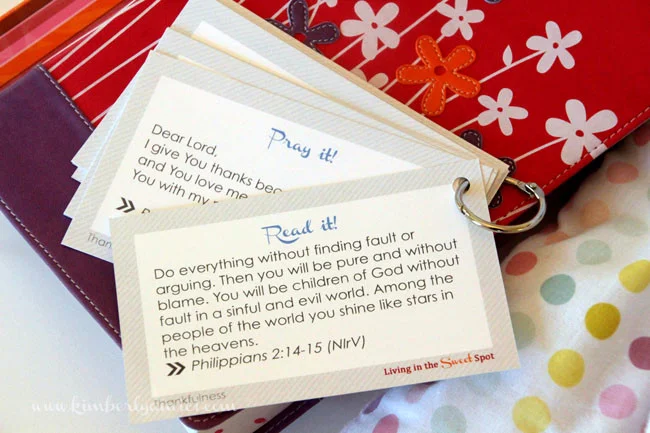 Pray it!
Pray it!
Dear Lord,
I give You thanks bec
and You love me
You with my
Thankfulness
Read it!
Do everything without finding fault or
arguing. Then you will be pure and without
blame. You will be children of God without
fault in a sinful and evil world. Among the
people of the world you shine like stars in
the heavens.
Philippians 2:14-15 (NIrV)
Living in the Sweet Spot
Thankfulness